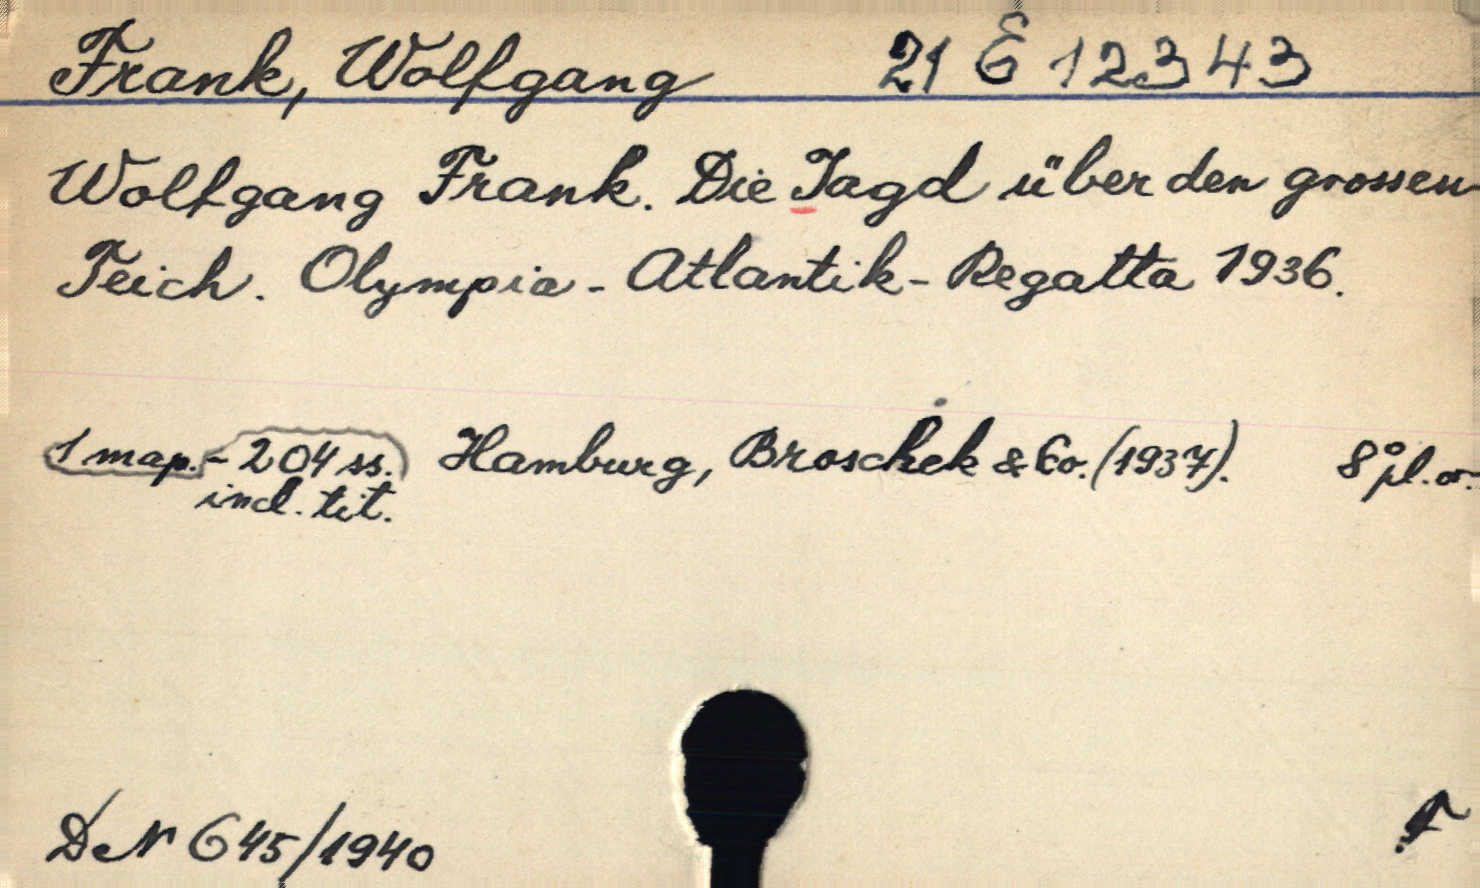 Frank, Wolfgang 21 E 12343
Wolfgang Frank. Die Jagd über den grossen
Teich. Olympia-Atlantik-Regatta 1936.
1 map. - 204 ss. Hamburg, Broschek & Co. (1937). 8° pl. or.
incl. tit.
DeN 645/1940 F